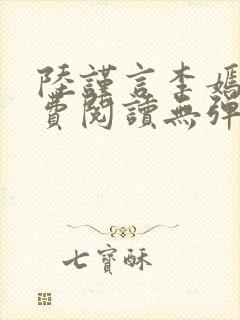 陸謹言李媽
費閱讀無彈
七寶酥